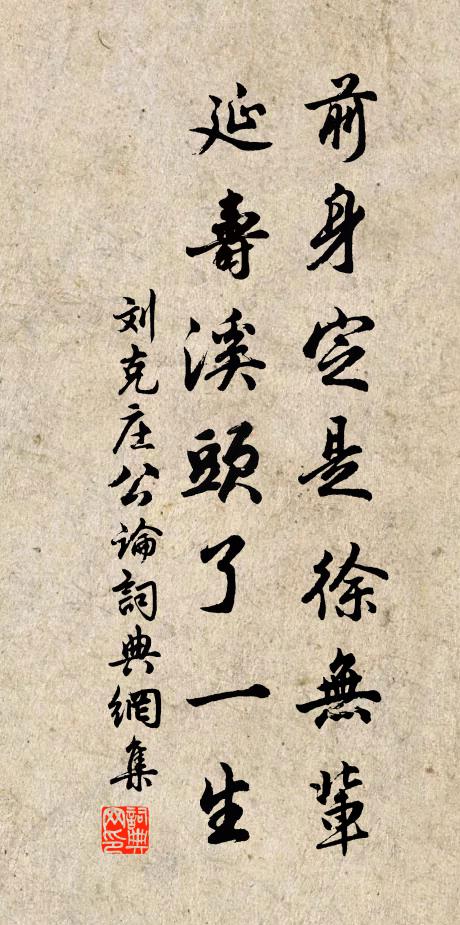 前身定是徐無輩
延壽溪頭了一生
刘克庄公論詞典網集
詞典网印